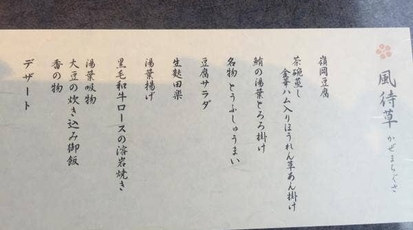 風待草 かぜまちぐさ
嶺岡豆腐
茶碗蒸し
金華ハム入りほうれん草あん掛け
鮪の湯葉とろろ掛け
名物 とうふしゅうまい
豆腐サラダ
生麩田楽
湯葉揚げ
黒毛和牛ロースの溶岩焼き
湯葉吸物
大豆の炊き込み御飯
香の物
デザート